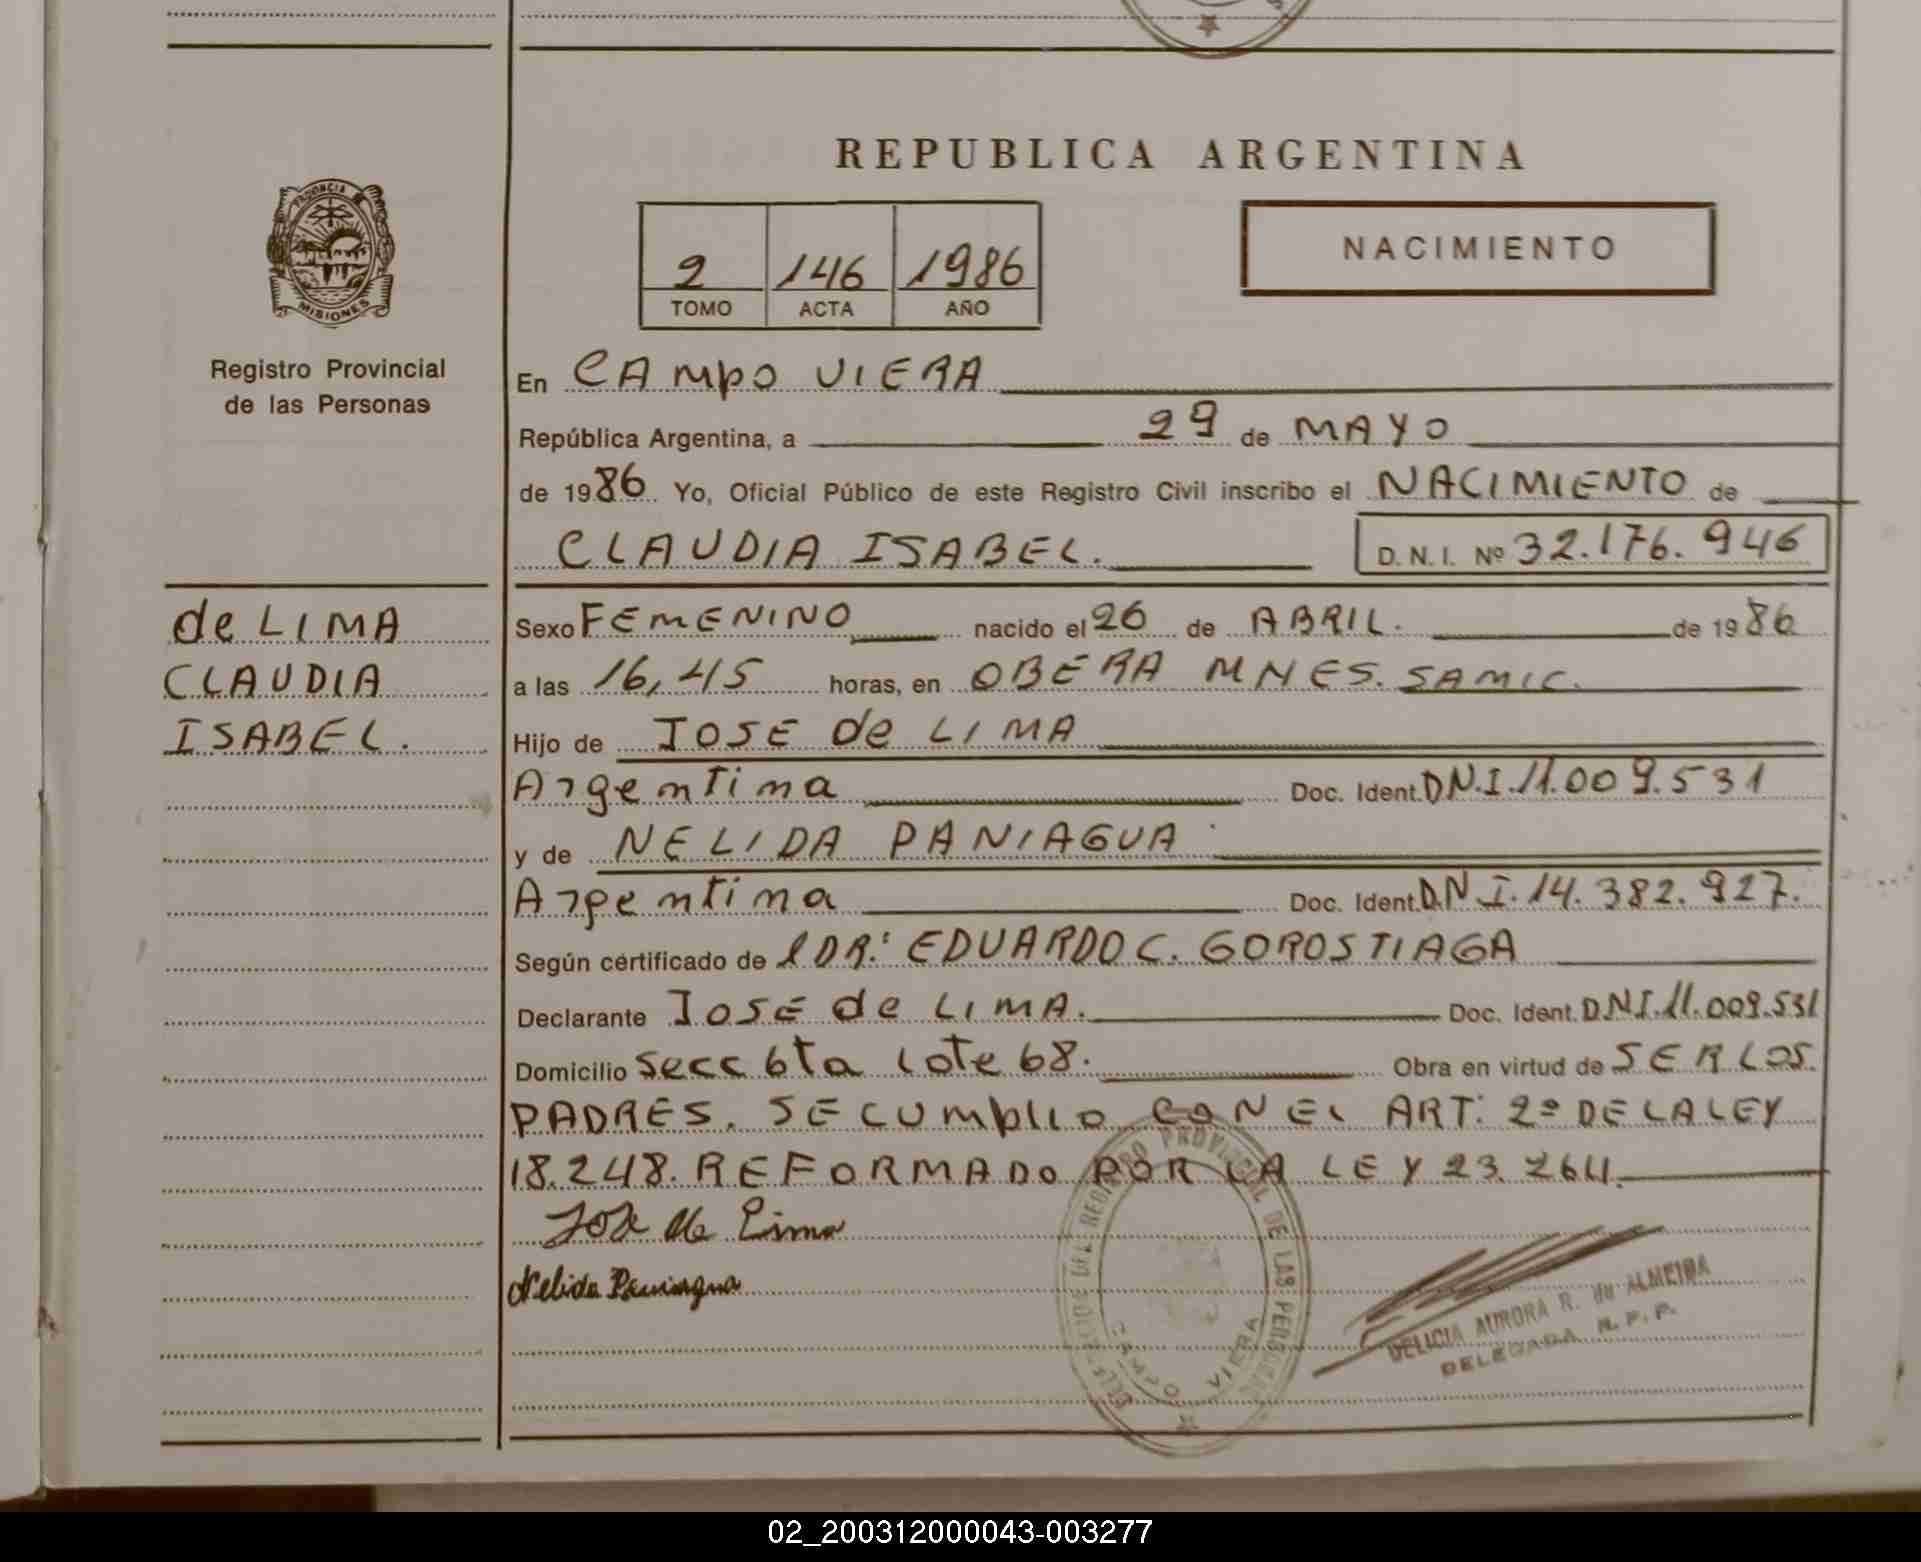 REPUBLICA ARGENTINA
PROVINCIA
MISIONES
Registro Provincial
de las Personas
2 146 1986
TOMO ACTA AÑO
NACIMIENTO
En CAMPO VIERA
República Argentina, a 29 de MAYO
de 1986. Yo, Oficial Público de este Registro Civil inscribo el NACIMIENTO de
CLAUDIA ISABEL. D. N. I. Nº 32.176.946
de LIMA
CLAUDIA
ISABEL.
Sexo FEMENINO nacido el 26 de ABRIL. de 1986
a las 16,45 horas, en OBERA MNES. SAMIC.
Hijo de JOSE de LIMA
Argentina Doc. Ident. D.N.I. 11.009.531
y de NELIDA PANIAGUA
Argentina Doc. Ident. D.N.I. 14.382.927.
Según certificado de l DR: EDUARDO C. GOROSTIAGA
Declarante JOSE de LIMA. Doc. Ident. D.N.I. 11.009.531
Domicilio Secc 6ta Lote 68. Obra en virtud de SER LOS
PADRES. SE CUMPLIO CON EL ART: 2º DE LA LEY
18.248. REFORMADO POR LA LEY 23.264.
Jose de Lima
Nelida Paniagua
DEL REGISTRO PROVINCIAL DE LAS PERSONAS
CAMPO VIERA
DELICIA AURORA R. de ALMEIDA
DELEGADA R. P. P.
02_200312000043-003277